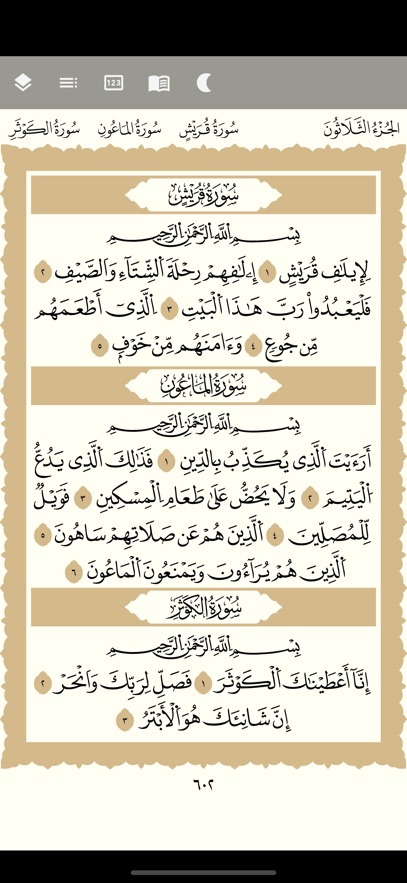 123
الجُزْءُ الثَّلَاثُونَ سُورَةُ قُرَيْشٍ سُورَةُ المَاعُونِ سُورَةُ الكَوْثَرِ
سُورَةُ قُرَيْشٍ
بِسْمِ اللَّهِ الرَّحْمَٰنِ الرَّحِيمِ
لِإِيلَٰفِ قُرَيْشٍ ١ إِۦلَٰفِهِمْ رِحْلَةَ الشِّتَآءِ وَالصَّيْفِ ٢
فَلْيَعْبُدُواْ رَبَّ هَٰذَا الْبَيْتِ ٣ الَّذِىٓ أَطْعَمَهُم
مِّن جُوعٍ ٤ وَءَامَنَهُم مِّنْ خَوْفٍ ٥
سُورَةُ المَاعُونِ
بِسْمِ اللَّهِ الرَّحْمَٰنِ الرَّحِيمِ
أَرَءَيْتَ الَّذِى يُكَذِّبُ بِالدِّينِ ١ فَذَٰلِكَ الَّذِى يَدُعُّ
الْيَتِيمَ ٢ وَلَا يَحُضُّ عَلَىٰ طَعَامِ الْمِسْكِينِ ٣ فَوَيْلٌ
لِّلْمُصَلِّينَ ٤ الَّذِينَ هُمْ عَن صَلَاتِهِمْ سَاهُونَ ٥
الَّذِينَ هُمْ يُرَآءُونَ وَيَمْنَعُونَ الْمَاعُونَ ٦
سُورَةُ الكَوْثَرِ
بِسْمِ اللَّهِ الرَّحْمَٰنِ الرَّحِيمِ
إِنَّآ أَعْطَيْنَٰكَ الْكَوْثَرَ ١ فَصَلِّ لِرَبِّكَ وَانْحَرْ ٢
إِنَّ شَانِئَكَ هُوَ الْأَبْتَرُ ٣
٦٠٢